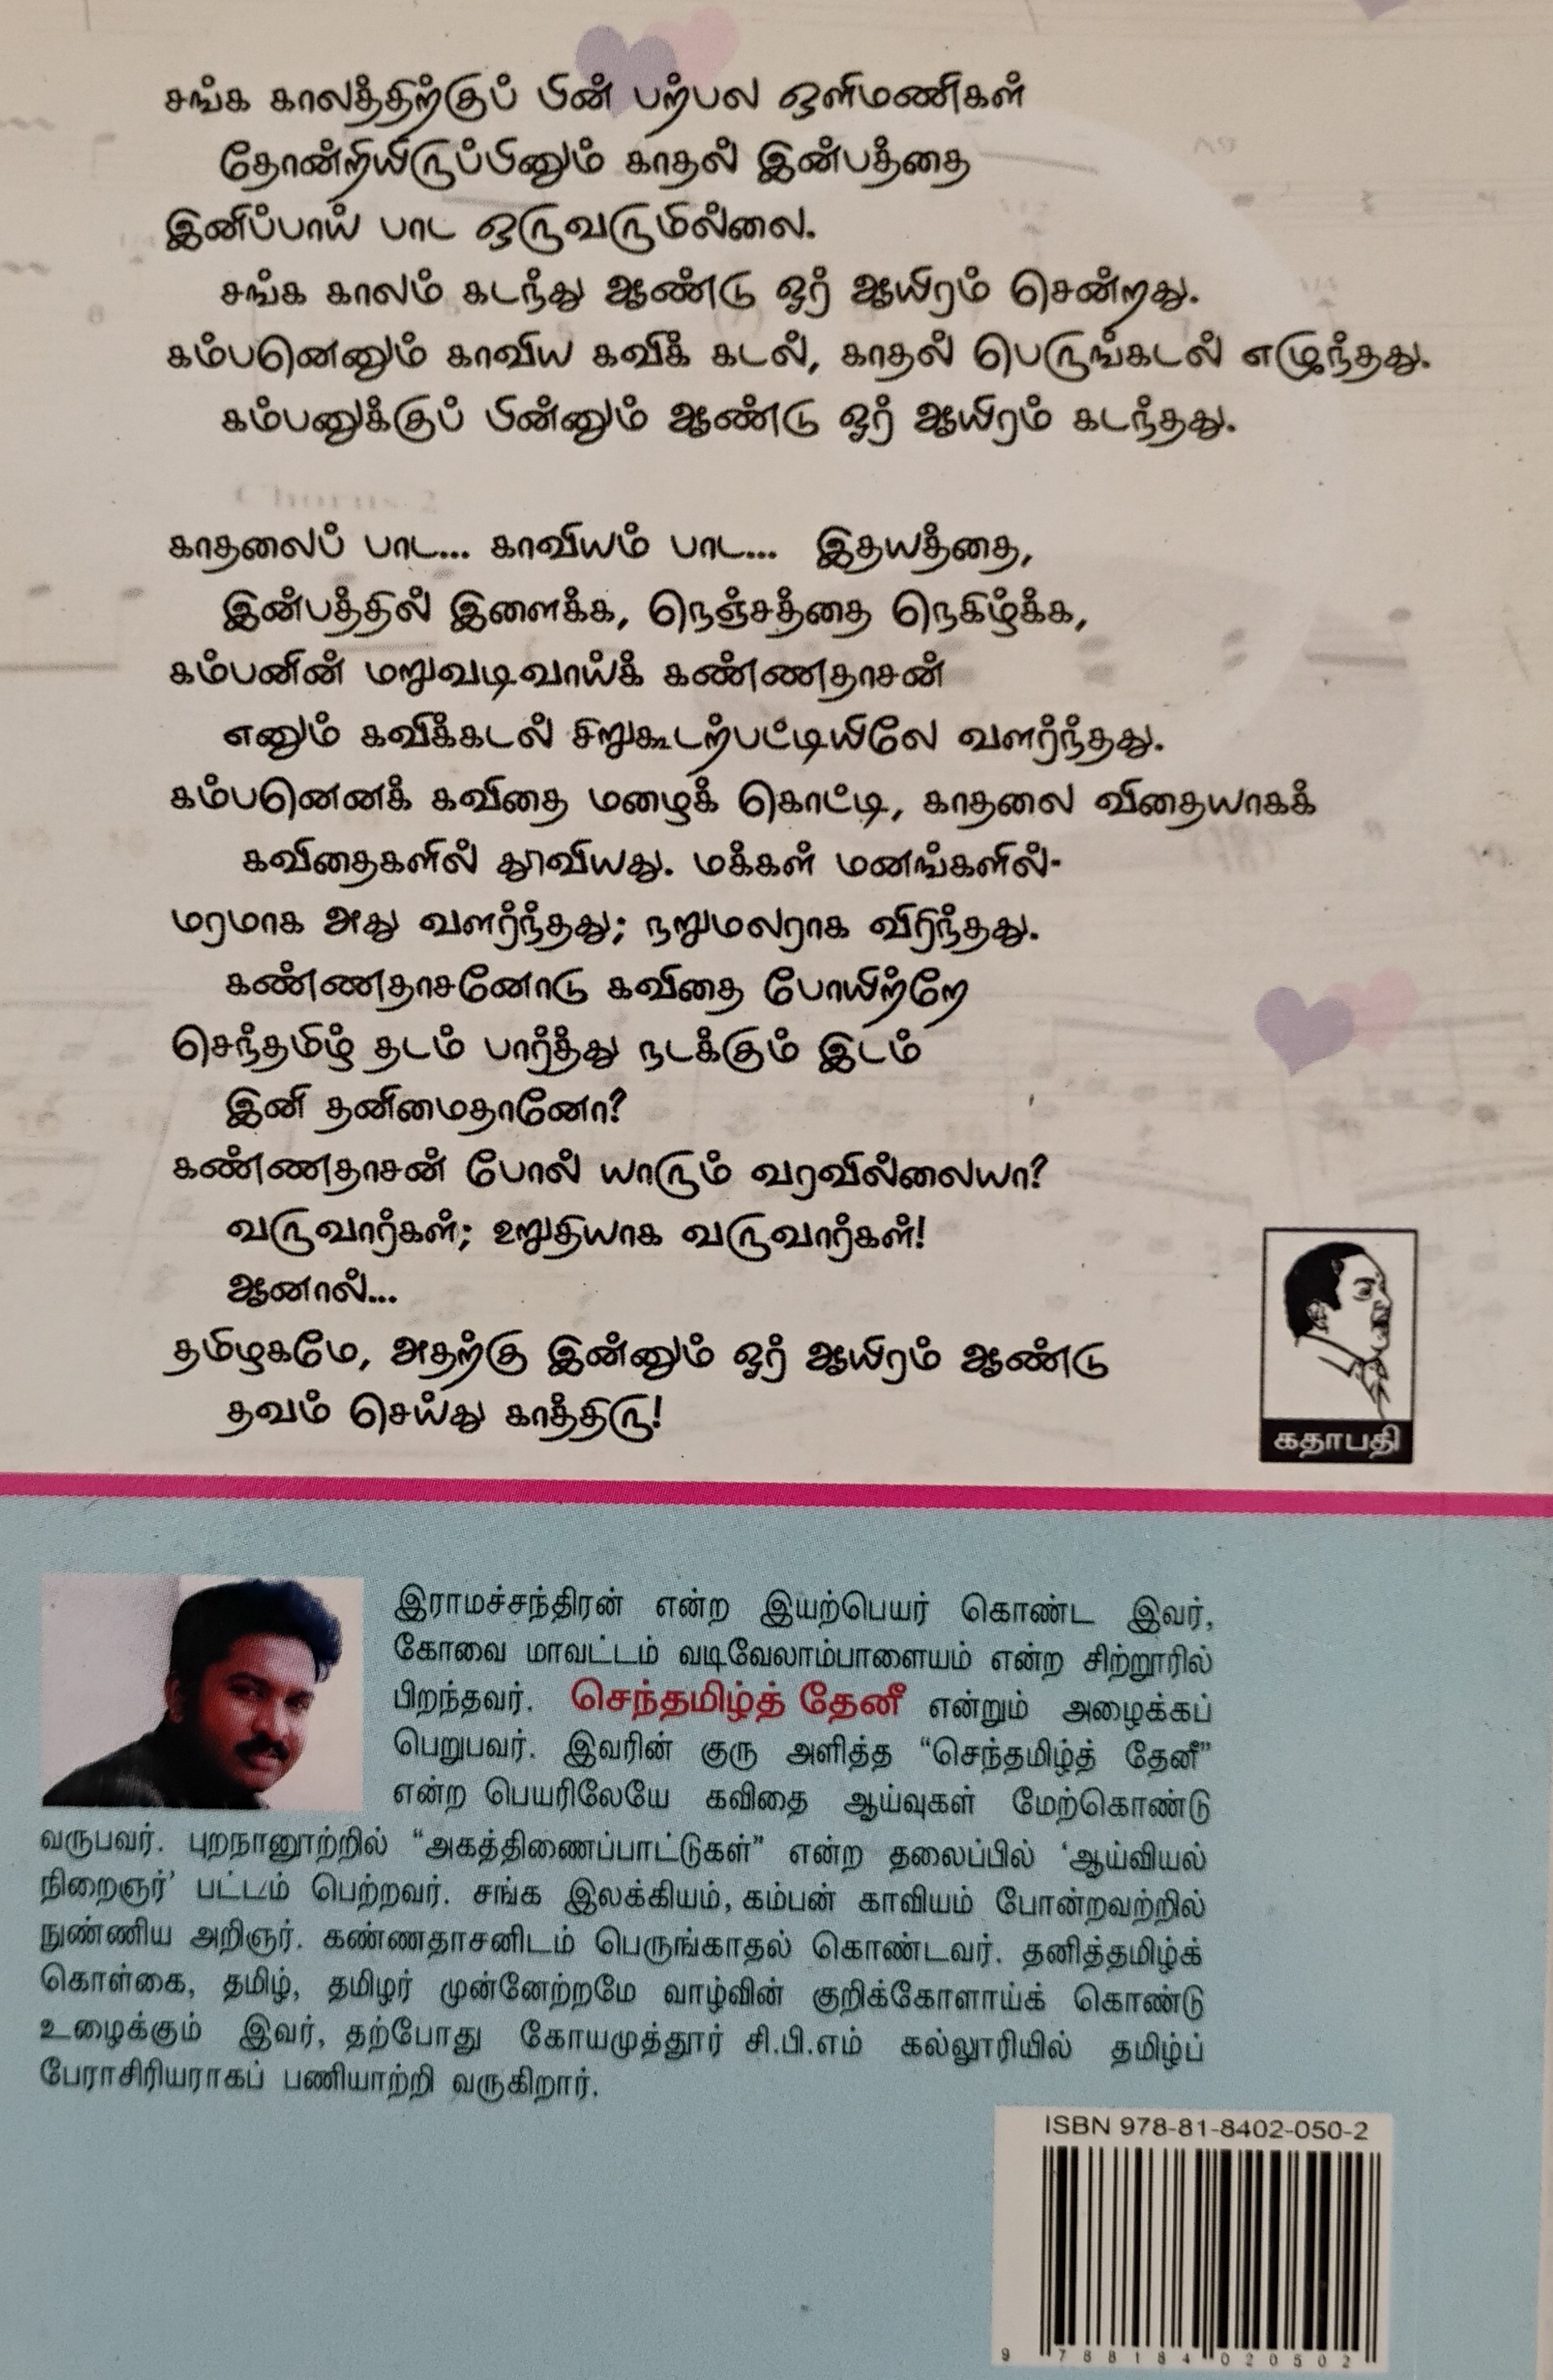 சங்க காலத்திற்குப் பின் பற்பல ஒளிமணிகள்
தோன்றியிருப்பினும் காதல் இன்பத்தை
இனிப்பாய் பாட ஒருவருமில்லை.
சங்க காலம் கடந்து ஆண்டு ஓர் ஆயிரம் சென்றது.
கம்பனெனும் காவிய கவிக் கடல், காதல் பெருங்கடல் எழுந்தது.
கம்பனுக்குப் பின்னும் ஆண்டு ஓர் ஆயிரம் கடந்தது.
காதலைப் பாட... காவியம் பாட... இதயத்தை,
இன்பத்தில் இளைக்க, நெஞ்சத்தை நெகிழ்க்க,
கம்பனின் மறுவடிவாய்க் கண்ணதாசன்
எனும் கவிக்கடல் சிறுகூடற்பட்டியிலே வளர்ந்தது.
கம்பனெனக் கவிதை மழைக் கொட்டி, காதலை விதையாகக்
கவிதைகளில் தூவியது. மக்கள் மனங்களில்-
மரமாக அது வளர்ந்தது; நறுமலராக விரிந்தது.
கண்ணதாசனோடு கவிதை போயிற்றே
செந்தமிழ் தடம் பார்த்து நடக்கும் இடம்
இனி தனிமைதானோ?
கண்ணதாசன் போல் யாரும் வரவில்லையா?
வருவார்கள்; உறுதியாக வருவார்கள்!
ஆனால்...
தமிழகமே, அதற்கு இன்னும் ஓர் ஆயிரம் ஆண்டு
தவம் செய்து காத்திரு!
கதாபதி
இராமச்சந்திரன் என்ற இயற்பெயர் கொண்ட இவர்,
கோவை மாவட்டம் வடிவேலாம்பாளையம் என்ற சிற்றூரில்
பிறந்தவர். செந்தமிழ்த் தேனீ என்றும் அழைக்கப்
பெறுபவர். இவரின் குரு அளித்த "செந்தமிழ்த் தேனீ"
என்ற பெயரிலேயே கவிதை ஆய்வுகள் மேற்கொண்டு
வருபவர். புறநானூற்றில் "அகத்திணைப்பாட்டுகள்" என்ற தலைப்பில் 'ஆய்வியல்
நிறைஞர்' பட்டம் பெற்றவர். சங்க இலக்கியம், கம்பன் காவியம் போன்றவற்றில்
நுண்ணிய அறிஞர். கண்ணதாசனிடம் பெருங்காதல் கொண்டவர். தனித்தமிழ்க்
கொள்கை, தமிழ், தமிழர் முன்னேற்றமே வாழ்வின் குறிக்கோளாய்க் கொண்டு
உழைக்கும் இவர், தற்போது கோயமுத்தூர் சி.பி.எம் கல்லூரியில் தமிழ்ப்
பேராசிரியராகப் பணியாற்றி வருகிறார்.
ISBN 978-81-8402-050-2
9 788184 020502